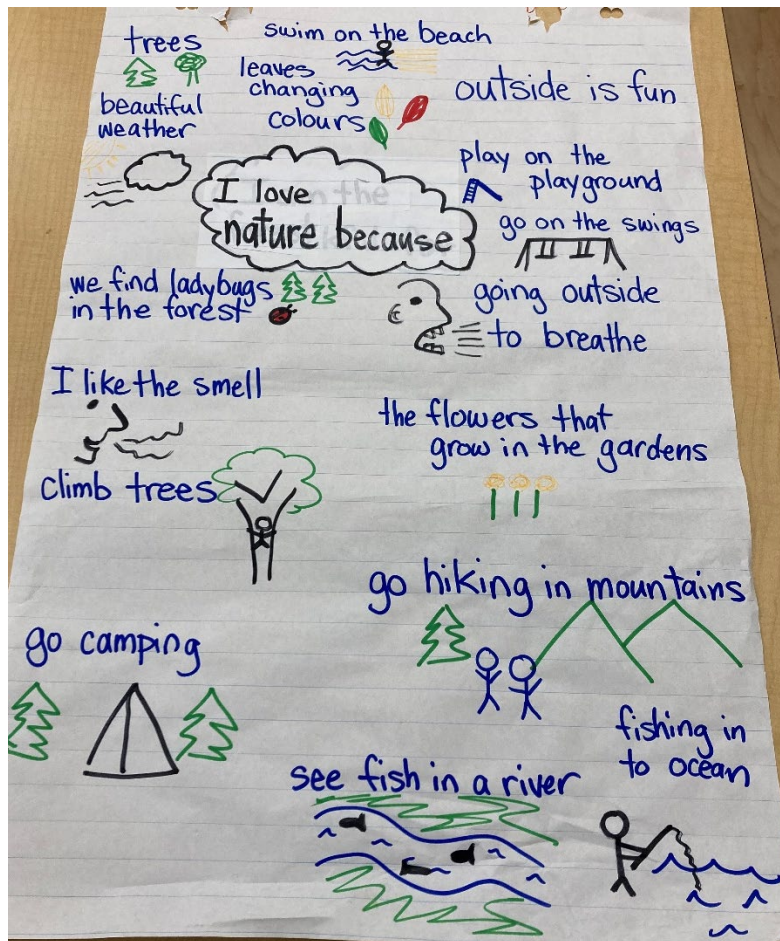 trees
swim on the beach
leaves
changing
colours
outside is fun
beautiful
weather
play on the
playground
I love
nature because
go on the swings
we find ladybugs
in the forest
going outside
to breathe
I like the smell
the flowers that
grow in the gardens
climb trees
go hiking in mountains
go camping
fishing in
to ocean
see fish in a river